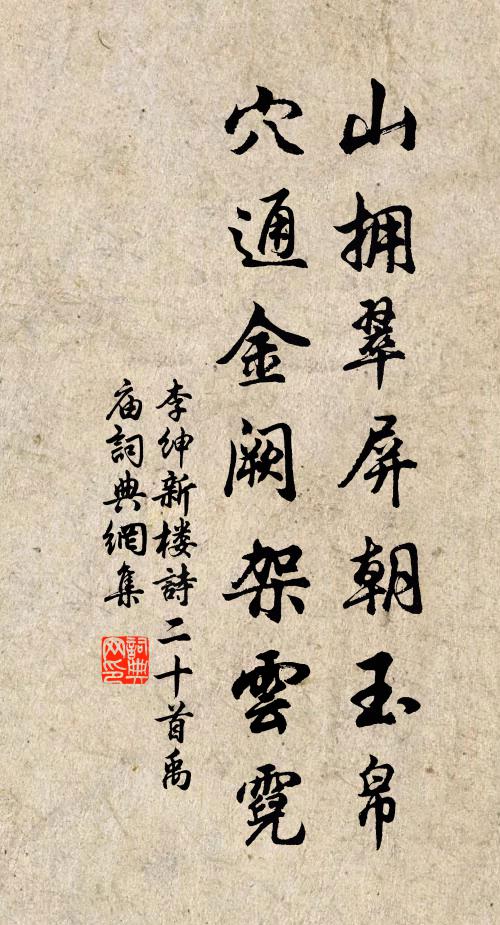 山拥翠屏朝玉帛
穴通金阙架雲霓
李绅新楼詩二十首禹
庙詞典網集
詞典网印